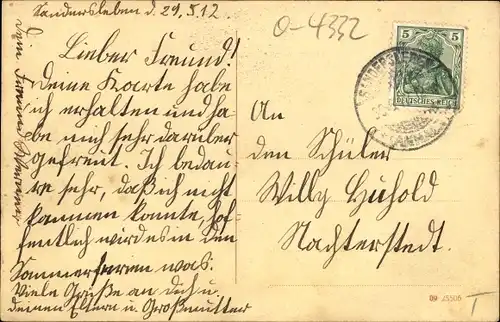 Sandersleben d. 29.5.12
Lieber Freund!
Deine Karte habe
ich erhalten und ha-
be mich sehr darüber
gefreut. Ich bedau-
re sehr, daß ich nicht
kommen konnte, hof-
fentlich wird es in den
Sommerferien was.
Viele Grüße an dich u.
deinen Eltern u. Großmutter
Dein Freund
O-4332
5 5
DEUTSCHES REICH
SANDERSLEBEN
An
den Schüler
Willy Huhold
Nachterstedt.
09 25506